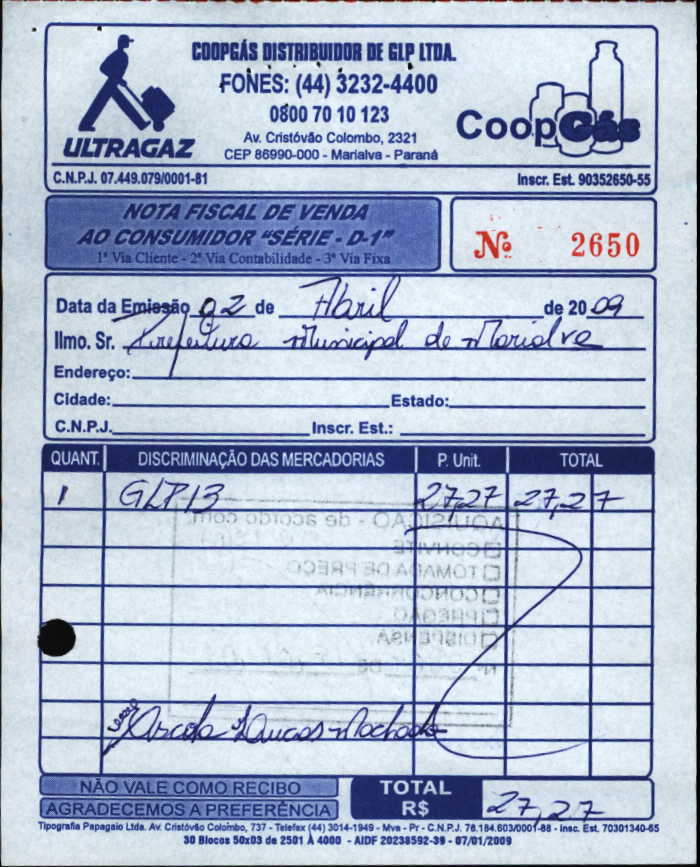 COOPGÁS DISTRIBUIDOR DE GLP LTDA.
FONES: (44) 3232-4400
0800 70 10 123
Av. Cristóvão Colombo, 2321
CEP 86990-000 - Marialva - Paraná
ULTRAGAZ
CoopGás
C.N.P.J. 07.449.079/0001-81
Inscr. Est. 90352650-55
NOTA FISCAL DE VENDA
AO CONSUMIDOR "SÉRIE - D-1"
1ª Via Cliente - 2ª Via Contabilidade - 3ª Via Fixa
Nº 2650
Data da Emissão 02 de Abril de 2009
Ilmo. Sr. Prefeitura Municipal de Marialva
Endereço:
Cidade: Estado:
C.N.P.J. Inscr. Est.:
QUANT. DISCRIMINAÇÃO DAS MERCADORIAS P. Unit. TOTAL
1 GLP13 27,27 27,27
AQUISIÇÃO - de acordo com:
CONVITE
TOMADA DE PREÇO
CONCORRÊNCIA
PREGÃO
DISPENSA
Escola Lucas Machado
NÃO VALE COMO RECIBO
AGRADECEMOS A PREFERÊNCIA
TOTAL R$ 27,27
Tipografia Papagaio Ltda. Av. Cristóvão Colombo, 737 - Telefax (44) 3014-1949 - Mva - Pr - C.N.P.J. 78.184.603/0001-88 - Insc. Est. 70301340-65
30 Blocos 50x03 de 2501 À 4000 - AIDF 20238592-39 - 07/01/2009